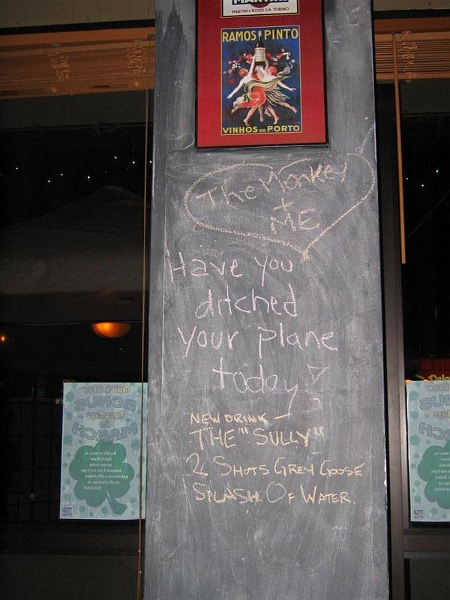 MARTINI
MARTINI & ROSSI S.A. TORINO
RAMOS PINTO
VINHOS DO PORTO
The Monkey
+
ME
Have you
ditched
your plane
today?
NEW DRINK —
THE "SULLY"
2 SHOTS GREY GOOSE
SPLASH OF WATER
BONUS
MARCH